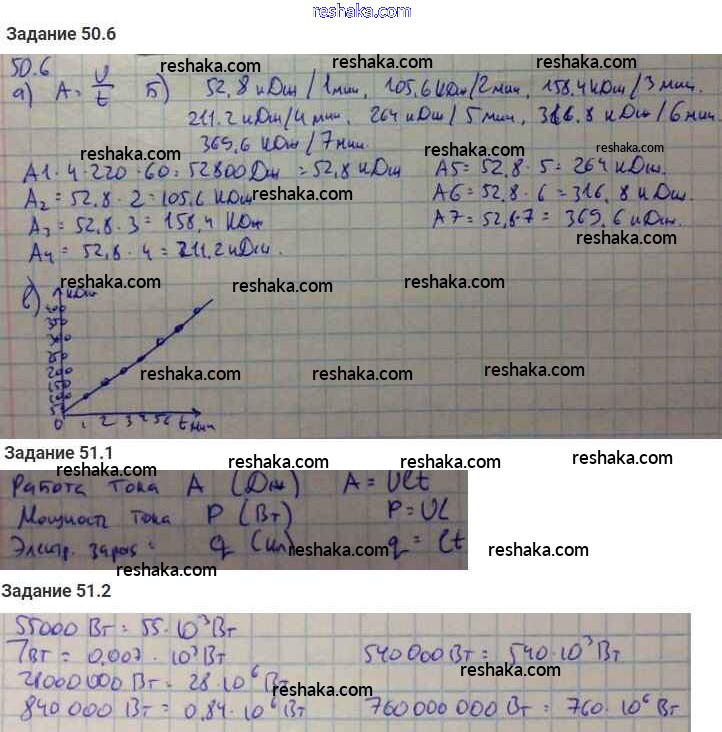 reshaka.com
Задание 50.6
50.6
reshaka.com reshaka.com reshaka.com
а) A = U/t Б) 52,8 кДж/1мин, 105,6 кДж/2мин, 158,4 кДж/3 мин.
211.2 кДж/4 мин, 264 кДж/5 мин, 316,8 кДж/6 мин.
reshaka.com reshaka.com reshaka.com
369,6 кДж/7 мин.
A1 · 4 · 220 · 60 = 52800 Дж = 52,8 кДж A5 = 52,8 · 5 = 264 кДж.
A2 = 52,8 · 2 = 105,6 кДж A6 = 52,8 · 6 = 316,8 кДж.
reshaka.com
A3 = 52,8 · 3 = 158,4 кДж A7 = 52,8·7 = 369,6 кДж.
A4 = 52,8 · 4 = 211,2 кДж.
reshaka.com reshaka.com
в) кДж
reshaka.com reshaka.com reshaka.com
reshaka.com reshaka.com reshaka.com
0 1 2 3 4 5 6 t мин
Задание 51.1
reshaka.com reshaka.com reshaka.com
Работа тока A (Дж) A = UIt
Мощность тока P (Вт) P = UI
reshaka.com reshaka.com
Электр. заряд: q (Кл) q = It
reshaka.com reshaka.com reshaka.com
Задание 51.2
reshaka.com reshaka.com
55000 Вт = 55·10³ Вт
7Вт = 0,007 · 10³ Вт 540 000 Вт = 540·10³ Вт
reshaka.com reshaka.com
28000000 Вт = 28·10⁶ Вт
840 000 Вт = 0,84·10⁶ Вт 760 000 000 Вт = 760·10⁶ Вт
reshaka.com reshaka.com